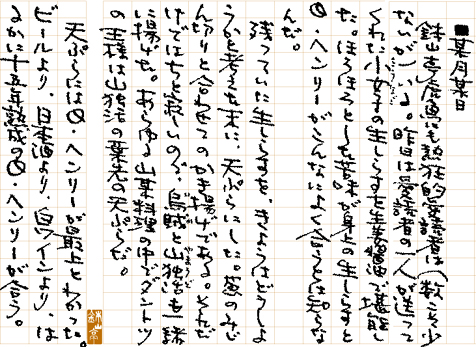 ■某月某日
鉢山亭虎魚にも熱狂的愛読者は(数こそ少
ないが)いる。昨日は愛読者の一人が送って
くれた小女子の生しらすを生姜醤油で堪能し
た。ほろほろとした苦味が身上の生しらすと
Q・ヘンリーがこんなによく合うとは知らな
んだ。
残っていた生しらすを、きょうはどうしよ
うかと考えた末に、天ぷらにした。葱のみじ
ん切りと合わせてのかき揚げである。それだ
けではちと寂しいので、烏賊と山独活も一緒
に揚げた。あらゆる山菜料理の中でダントツ
の王様は山独活の葉先の天ぷらだ。
天ぷらにはQ・ヘンリーが最上とわかった。
ビールより、日本酒より、白ワインより、は
るかに十五年熟成のQ・ヘンリーが合う。